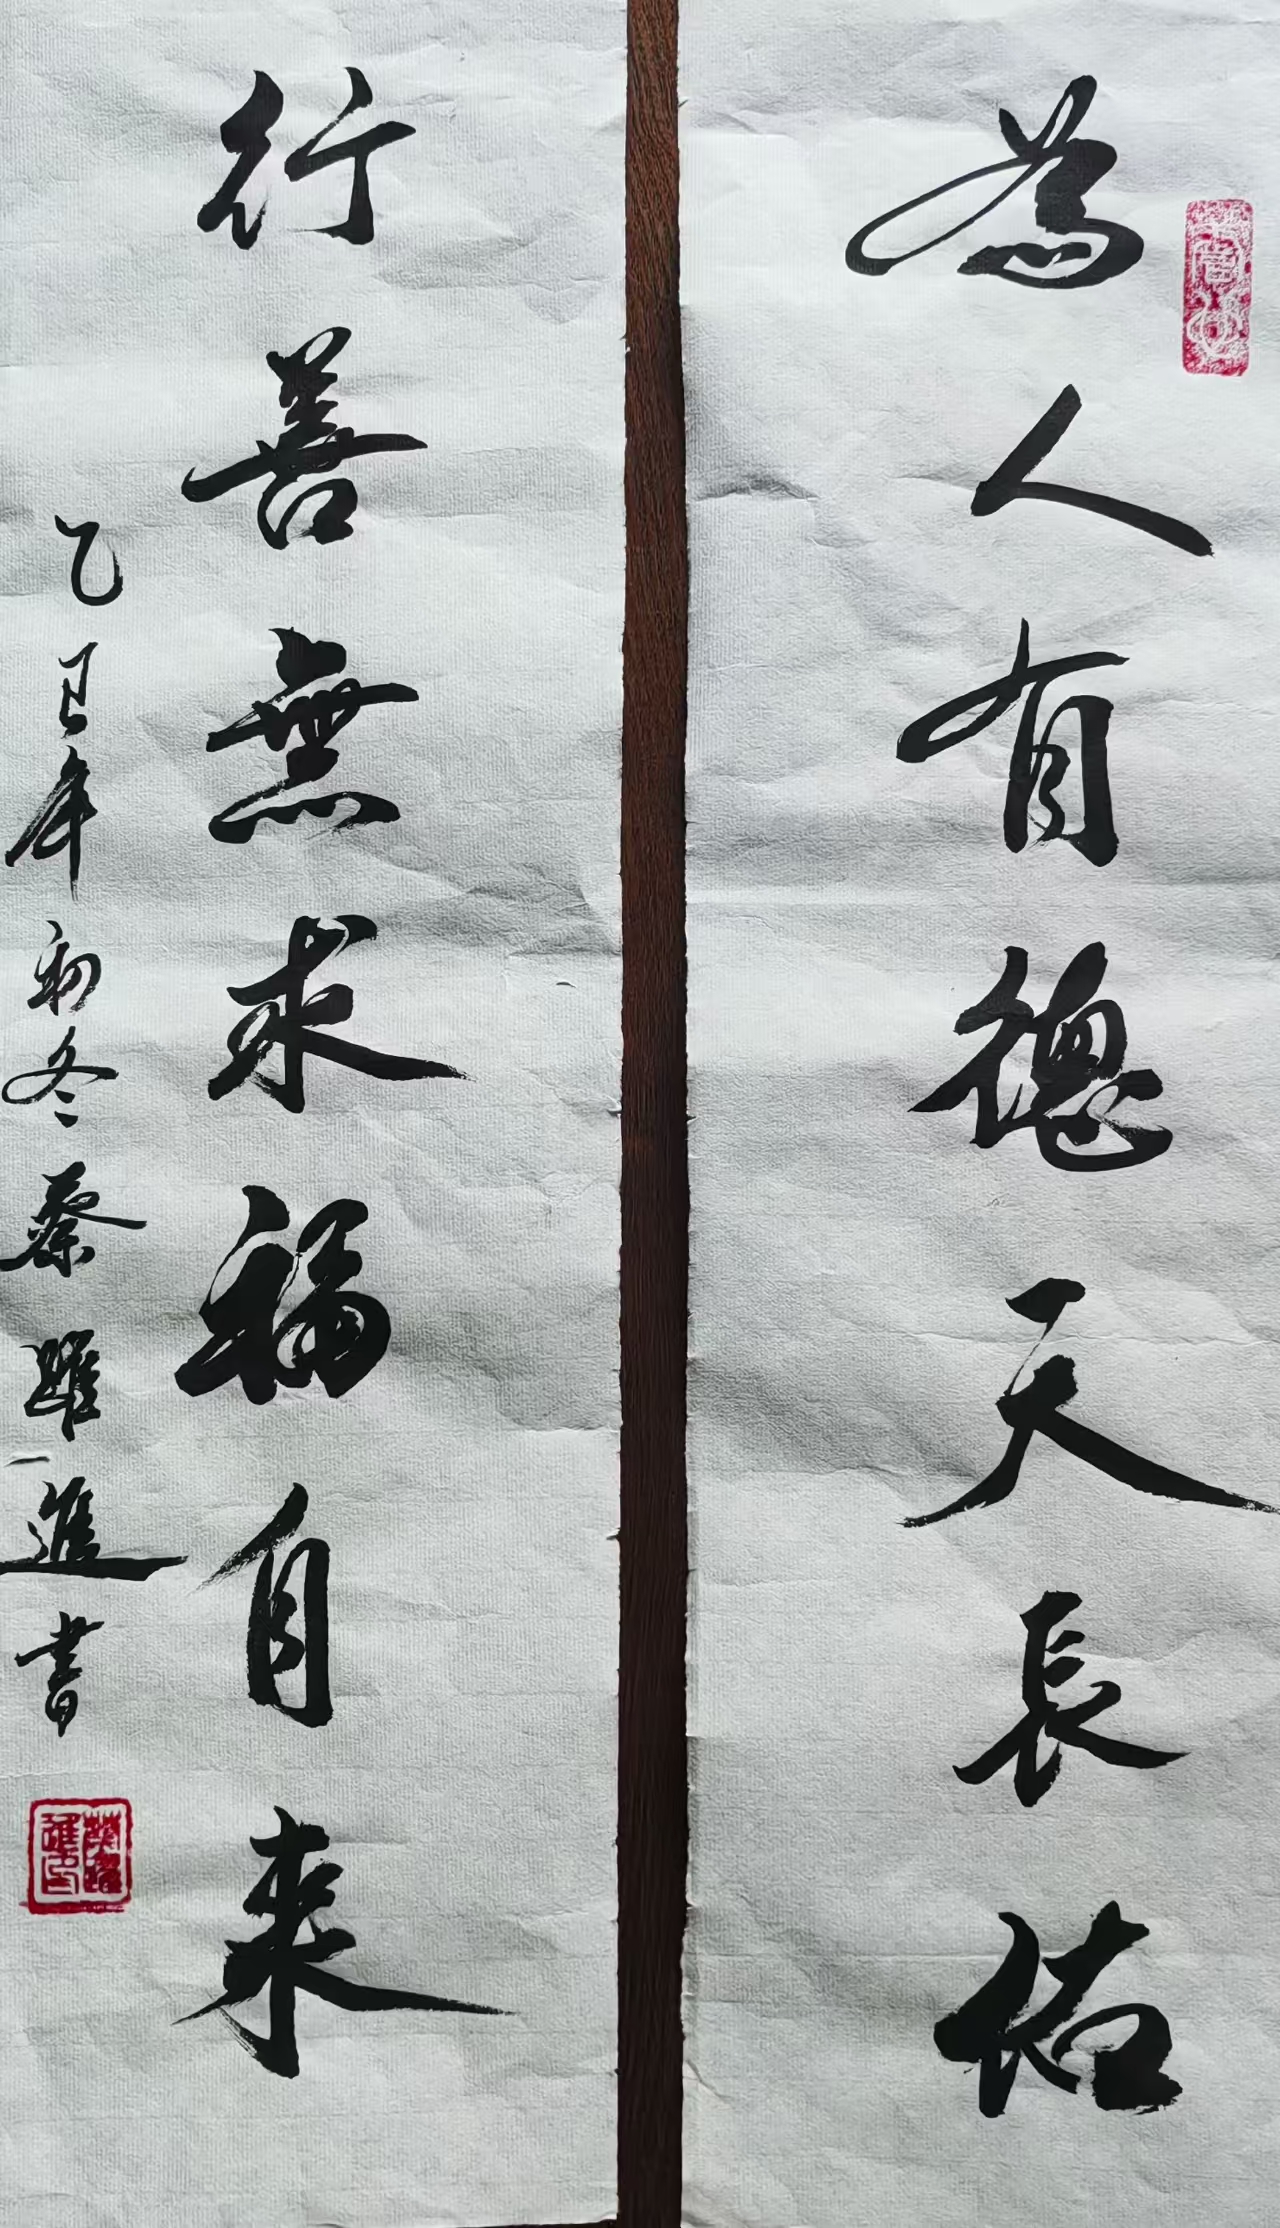 為人有德天長佑
行善無求福自來
乙巳年初冬蔡躍進書